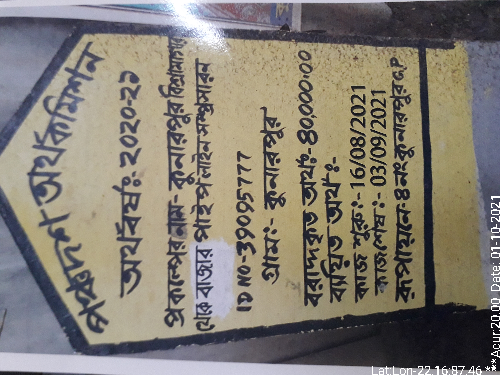 পঞ্চদশ অর্থ কমিশন
অর্থবর্ষ:- ২০২০-২১
প্রকল্পের নাম:- কুনারপুর বিশ্রামাগার
থেকে বাজার পাইপ লাইন সম্প্রসারন
ID NO-39095777
গ্রাম:- কুনারপুর
বরাদ্দকৃত অর্থ:- 80,000.00
ব্যয়িত অর্থ:-
কাজ শুরু:- 16/08/2021
কাজ শেষ:- 03/09/2021
রূপায়নে:- ৪নং কুনারপুর G.P
Lat Lon-22.16:87.46 **Acur20.00 Date: 01-10-2021